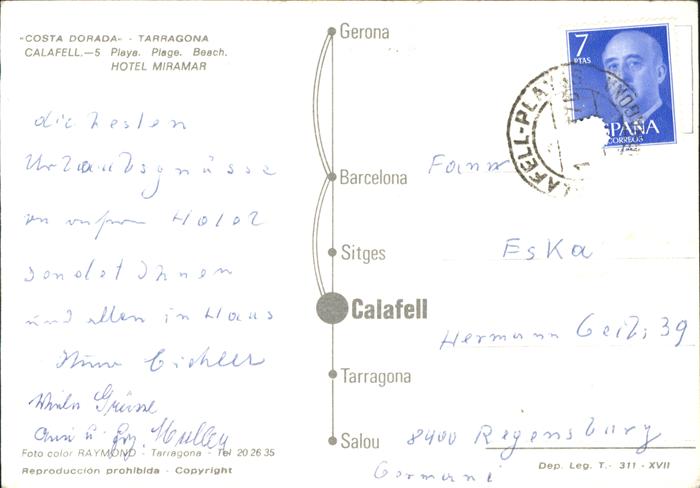 "COSTA DORADA" - TARRAGONA
CALAFELL.—5 Playa. Plage. Beach.
HOTEL MIRAMAR
die besten
Urlaubsgrüsse
Hotel
sendet Ihnen
und allen in Haus
Eichler
Viele Grüsse
Foto color RAYMOND - Tarragona - Tel 20 26 35
Reproducción prohibida - Copyright
Gerona
Barcelona
Sitges
Calafell
Tarragona
Salou
7
PTAS
ESPAÑA
CORREOS
CALAFELL-PLAYA
Eska
Hermann Geib 39
8400 Regensburg
Germani
Dep. Leg. T. - 311 - XVII